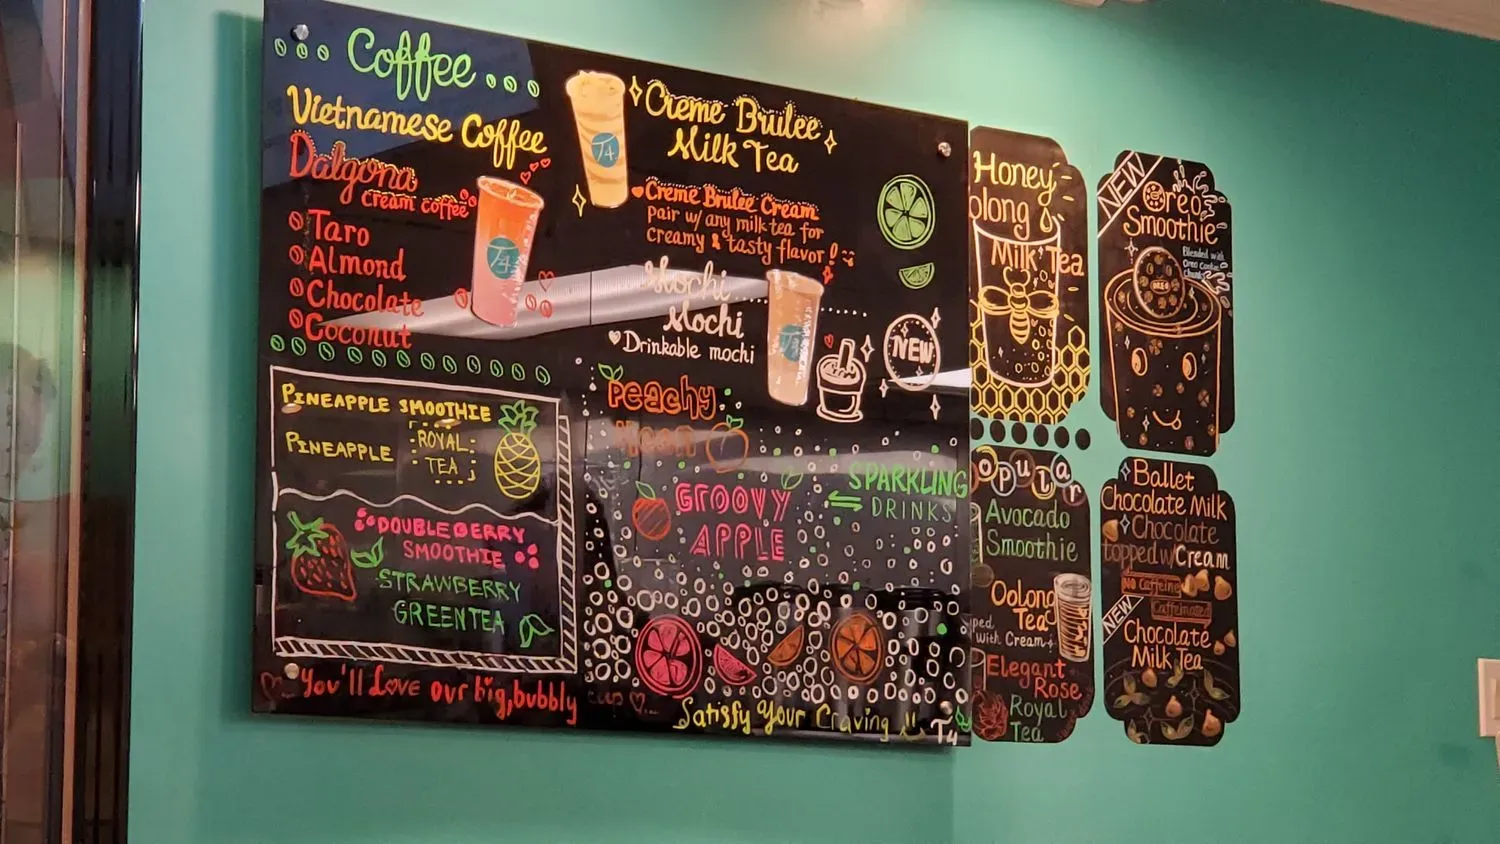 Coffee
Vietnamese Coffee
Dalgona
cream coffee
Taro
Almond
Chocolate
Coconut
T4
Creme Brulee
Milk Tea
T4
Creme Brulee Cream
pair w/ any milk tea for
creamy & tasty flavor!
Mochi
Mochi
Drinkable mochi
NEW
PINEAPPLE SMOOTHIE
PINEAPPLE ROYAL
TEA
DOUBLE BERRY
SMOOTHIE
STRAWBERRY
GREEN TEA
Peachy
Moon
GROOVY
APPLE
SPARKLING
DRINKS
You'll Love our big, bubbly cup
Satisfy Your Craving
T4
Honey
olong
Milk Tea
NEW
Oreo
Smoothie
Blended with
Oreo Cookie
Chunks
OREO
opular
Avocado
Smoothie
Oolong
Tea
ped
with Cream
Elegant
Rose
Royal
Tea
Ballet
Chocolate Milk
Chocolate
topped w/ Cream
No Caffeine
Caffeinated
NEW
Chocolate
Milk Tea